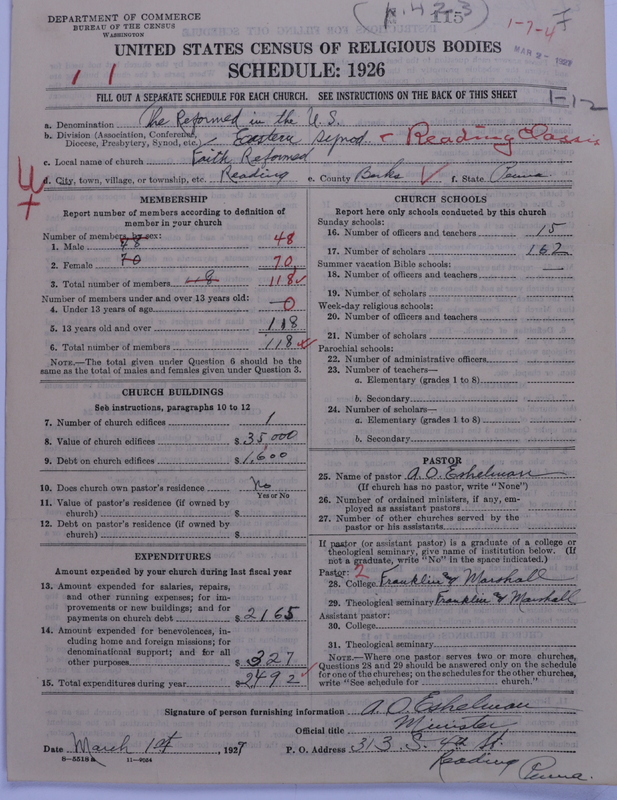 DEPARTMENT OF COMMERCE
BUREAU OF THE CENSUS
WASHINGTON
115
1-7-4
MAR 2 - 1927
UNITED STATES CENSUS OF RELIGIOUS BODIES
SCHEDULE: 1926
1 1
FILL OUT A SEPARATE SCHEDULE FOR EACH CHURCH. SEE INSTRUCTIONS ON THE BACK OF THIS SHEET
1-12
a. Denomination The Reformed in the U.S.
b. Division (Association, Conference, Diocese, Presbytery, Synod, etc.) Eastern Synod - Reading Classis
c. Local name of church Faith Reformed
d. City, town, village, or township, etc. Reading e. County Berks f. State Penna
MEMBERSHIP
Report number of members according to definition of
member in your church
Number of members by sex:
1. Male 48 48
2. Female 70 70
3. Total number of members 118 118
Number of members under and over 13 years old:
4. Under 13 years of age 0
5. 13 years old and over 118
6. Total number of members 118
NOTE.—The total given under Question 6 should be
same as the total of males and females given under Question 3.
CHURCH BUILDINGS
See instructions, paragraphs 10 to 12
7. Number of church edifices 1
8. Value of church edifices $ 35000
9. Debt on church edifices $ 1,600
10. Does church own pastor's residence No
Yes or No
11. Value of pastor's residence (if owned by
church) $
12. Debt on pastor's residence (if owned by
church) $
EXPENDITURES
Amount expended by your church during last fiscal year
13. Amount expended for salaries, repairs,
and other running expenses; for im-
provements or new buildings; and for
payments on church debt $ 2165
14. Amount expended for benevolences, in-
cluding home and foreign missions; for
denominational support; and for all
other purposes $ 327
15. Total expenditures during year $ 2492
CHURCH SCHOOLS
Report here only schools conducted by this church
Sunday schools:
16. Number of officers and teachers 15
17. Number of scholars 162
Summer vacation Bible schools:
18. Number of officers and teachers —
19. Number of scholars
Week-day religious schools:
20. Number of officers and teachers
21. Number of scholars
Parochial schools:
22. Number of administrative officers
23. Number of teachers—
a. Elementary (grades 1 to 8)
b. Secondary
24. Number of scholars—
a. Elementary (grades 1 to 8)
b. Secondary
PASTOR
25. Name of pastor A. O. Eshelman
(If church has no pastor, write "None")
26. Number of ordained ministers, if any, em-
ployed as assistant pastors
27. Number of other churches served by the
pastor or his assistants
If pastor (or assistant pastor) is a graduate of a college or
theological seminary, give name of institution below. (If
not a graduate, write "No" in the space indicated.)
Pastor: 2
28. College Franklin & Marshall
29. Theological seminary Franklin & Marshall
Assistant pastor:
30. College
31. Theological seminary
NOTE.—Where one pastor serves two or more churches,
Questions 28 and 29 should be answered only on the schedule
for one of the churches; on the schedules for the other churches,
write "See schedule for church."
Signature of person furnishing information A. O. Eshelman
Official title Minister
Date March 1st, 1927 P. O. Address 313 S. 4th St.
8-5518a 11-9554
Reading Penna.